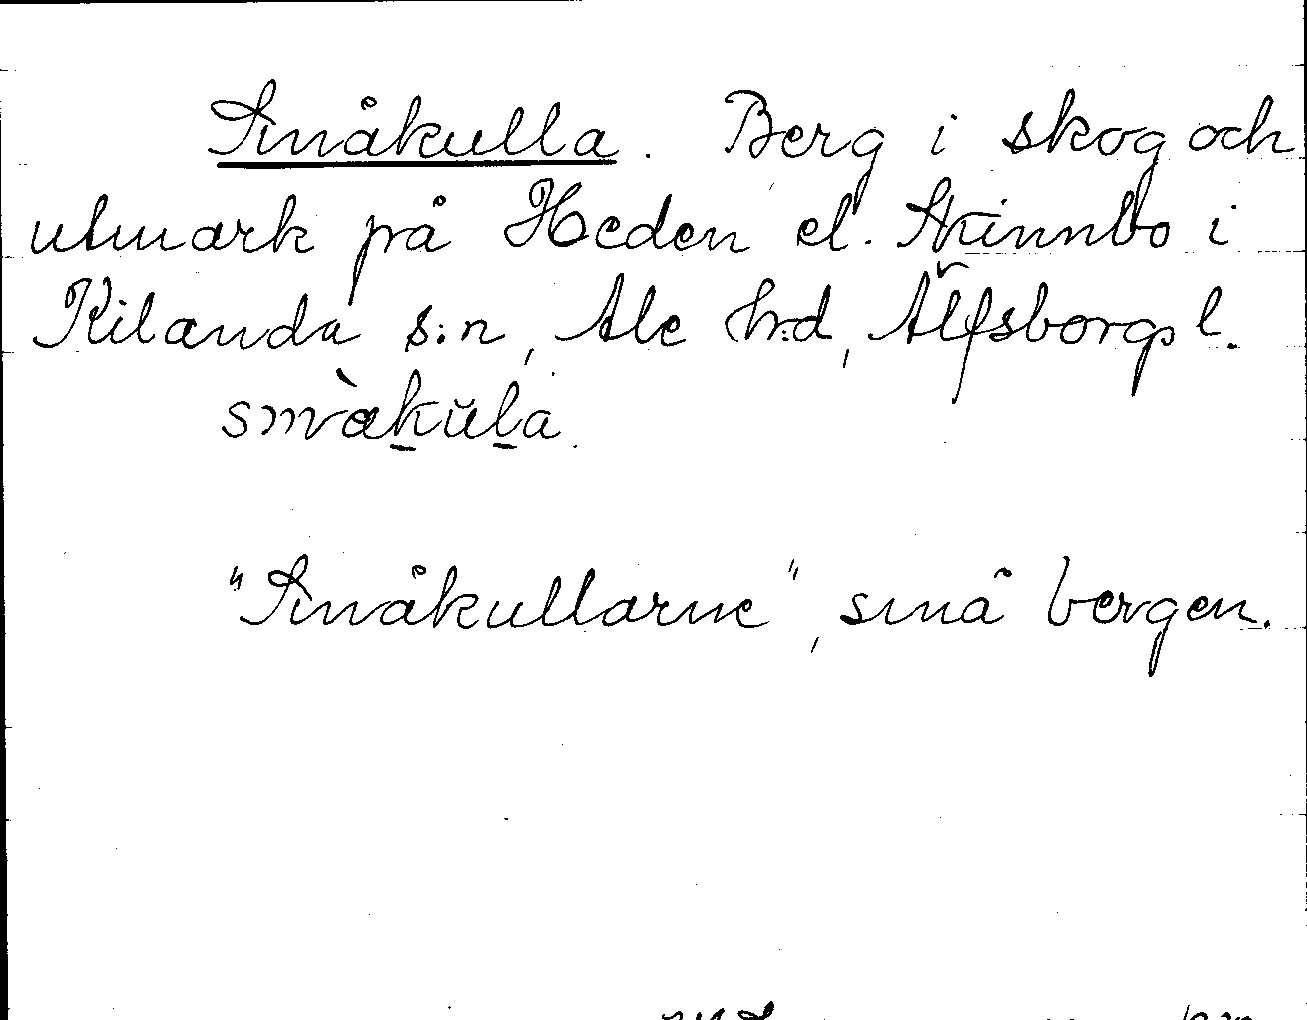 Småkulla. Berg i skog och
utmark på Heden el. Skinnbo i
Kilanda s:n, Ale h:d, Älfsborgs l.
småkŭla.
"Småkullarne", små bergen.